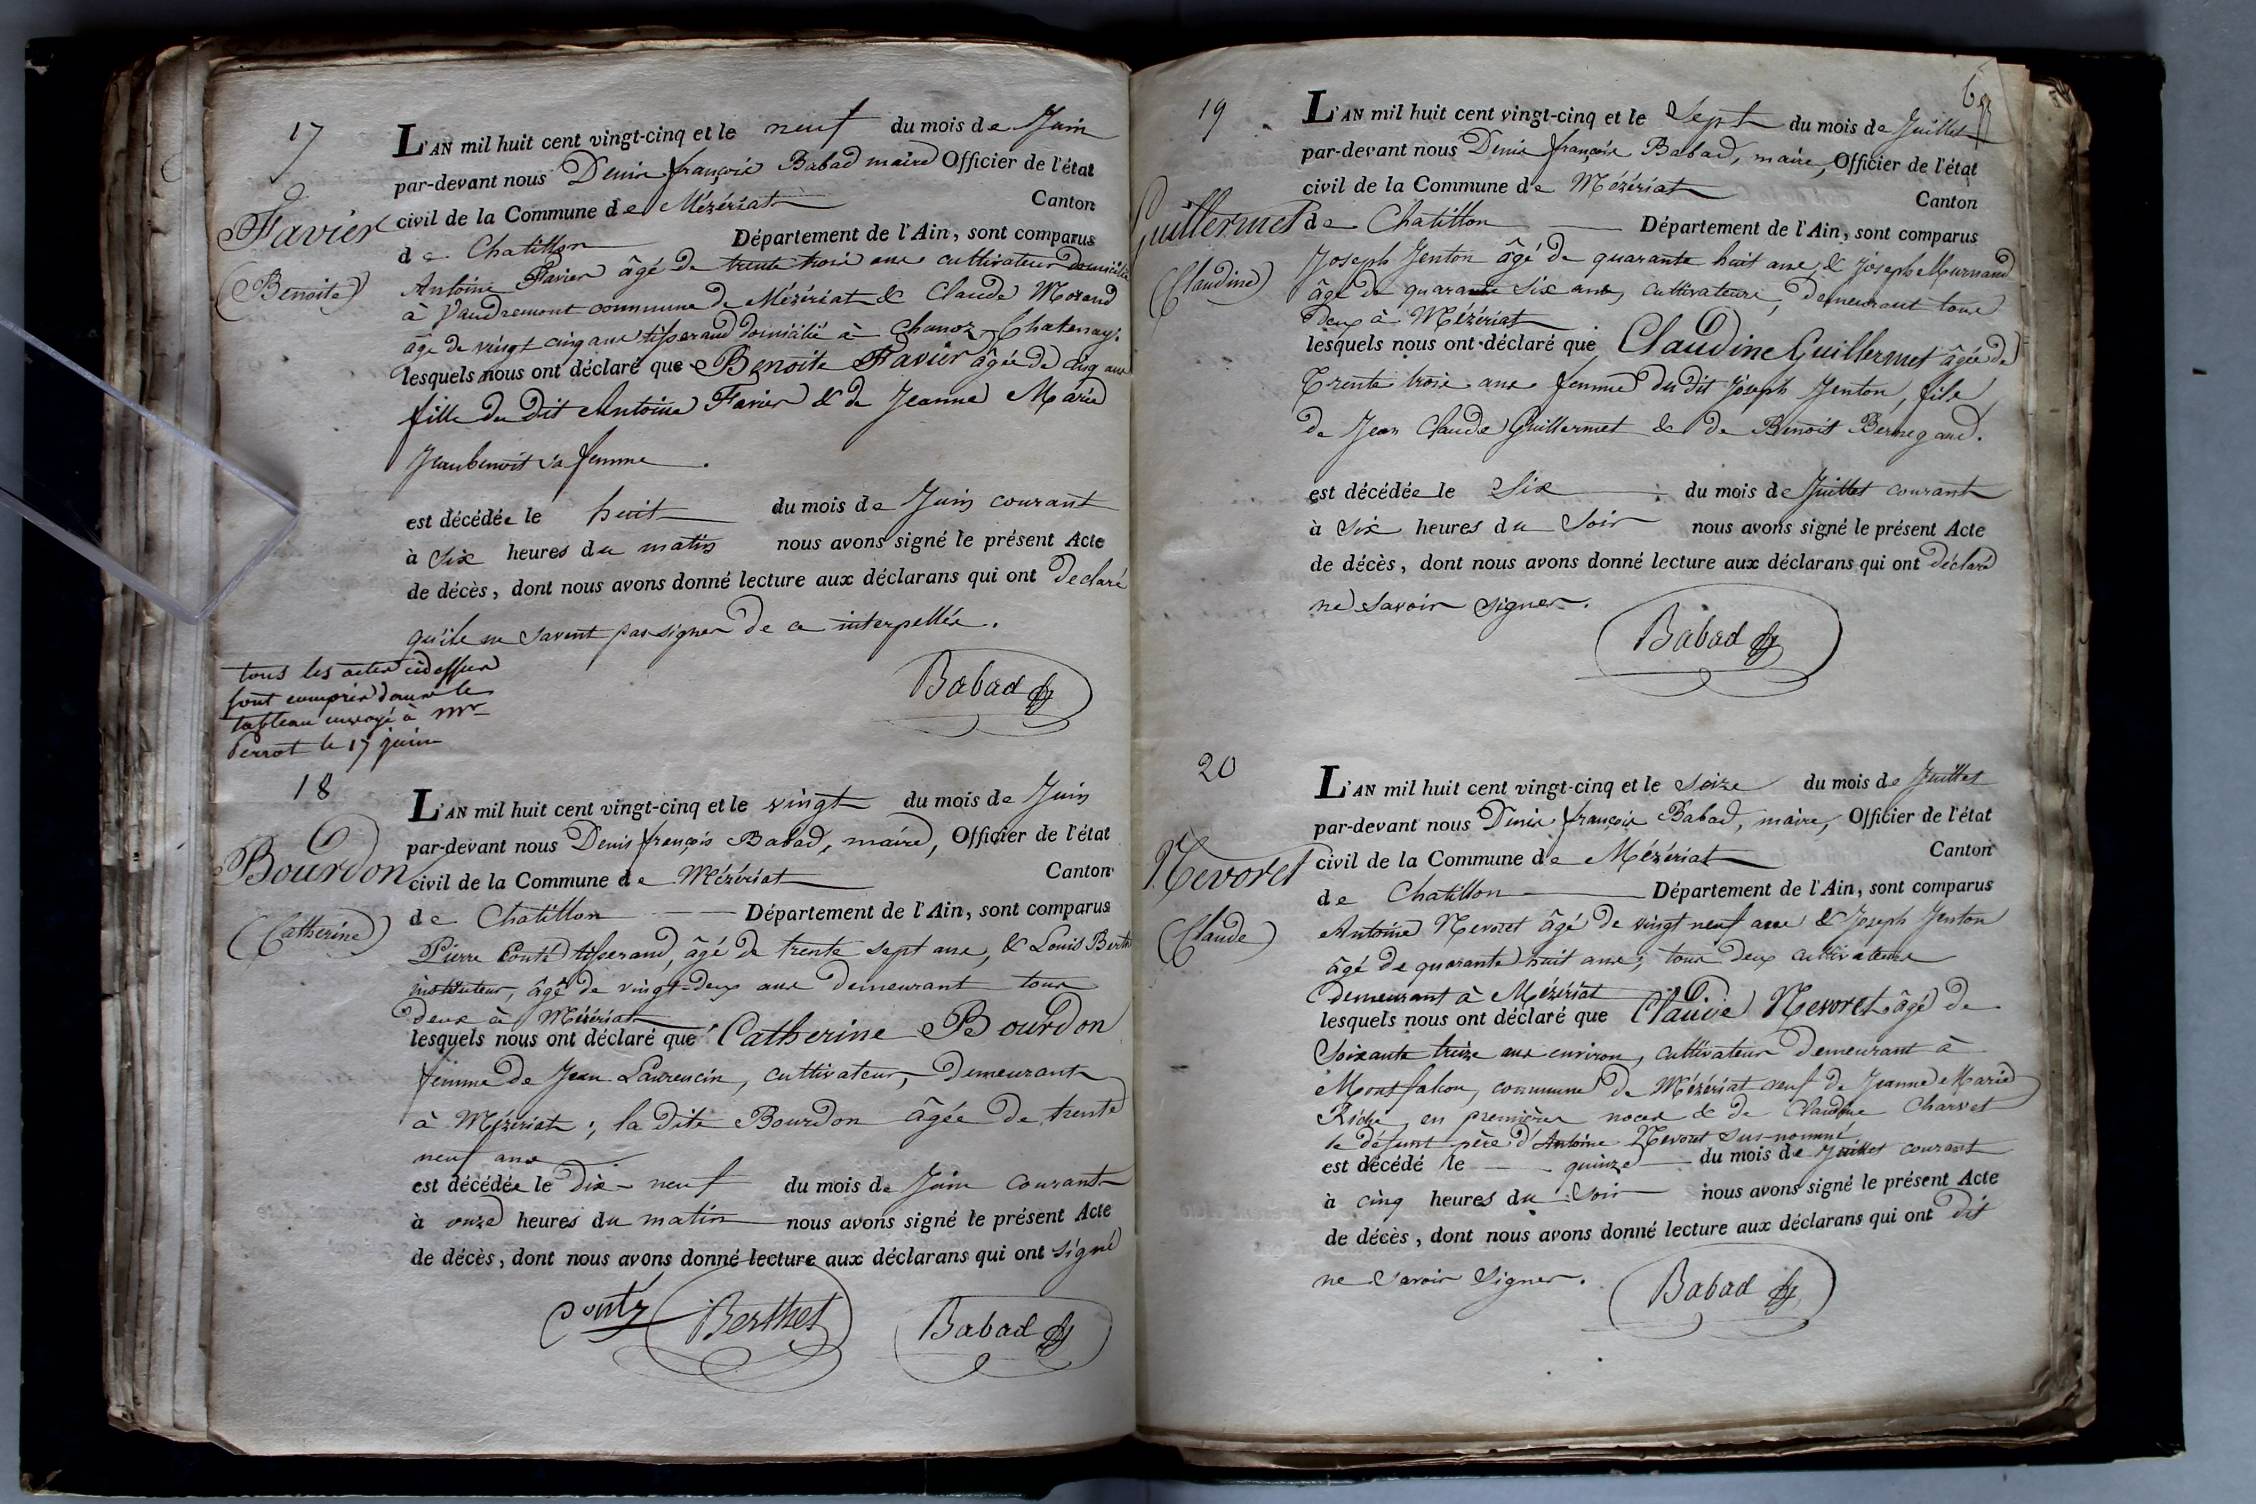 17
L'AN mil huit cent vingt-cinq et le neuf du mois de Juin
par-devant nous Denis françois Babad maire Officier de l'état
civil de la Commune de Mézériat Canton
Favier
de Chatillon Département de l'Ain, sont comparus
(Benoite)
Antoine Favier âgé de trente trois ans cultivateur domicilié
à Vaudremont commune de Mézériat & Claude Morand
âge de vingt cinq ans tisserand domicilié à Chanoz-Chatenay.
lesquels nous ont déclaré que Benoite Favier âgée de cinq ans
fille du dit Antoine Favier & de Jeanne Marie
Jeanbenoit sa femme.
est décédée le huit du mois de Juin courant
à six heures du matin nous avons signé le présent Acte
de décès, dont nous avons donné lecture aux déclarans qui ont declaré
qu'ils ne savent pas signer de ce interpellés.
Babad
tous les actes cidessus
sont compris dans le
tableau envoyé à Mr
Perrot le 17 juin
18
L'AN mil huit cent vingt-cinq et le vingt du mois de Juin
par-devant nous Denis françois Babad, maire, Officier de l'état
Bourdon
civil de la Commune de Mézériat Canton
de Chatillon Département de l'Ain, sont comparus
(Catherine)
Pierre Conté tisserand, âgé de trente sept ans, & Louis Berth
instituteur, âgé de vingt-deux ans demeurant tous
deux à Mézériat
lesquels nous ont déclaré que Catherine Bourdon
femme de Jean Laurencin, cultivateur, demeurant
à Mézériat; la dite Bourdon âgée de trente
neuf ans
est décédée le dix-neuf du mois de Juin courant
à onze heures du matin nous avons signé le présent Acte
de décès, dont nous avons donné lecture aux déclarans qui ont signé
Conté Berthet Babad
19
L'AN mil huit cent vingt-cinq et le Sept du mois de Juillet
par-devant nous Denis françois Babad, maire, Officier de l'état
civil de la Commune de Mézériat Canton
Guillermet
de Chatillon Département de l'Ain, sont comparus
(Claudine)
Joseph Jenton âgé de quarante huit ans, & Joseph Murnand
âgé de quarante six ans, cultivateurs, demeurant tous
deux à Mézériat
lesquels nous ont déclaré que Claudine Guillermet âgée de
Trente trois ans femme du dit Joseph Jenton, fille
de Jean Claude Guillermet & de Benoit Bernegaud.
est décédée le Six du mois de Juillet courant
à Six heures du Soir nous avons signé le présent Acte
de décès, dont nous avons donné lecture aux déclarans qui ont déclaré
ne savoir signer.
Babad
20
L'AN mil huit cent vingt-cinq et le Seize du mois de Juillet
par-devant nous Denis françois Babad, maire, Officier de l'état
Nevoret
civil de la Commune de Mézériat Canton
de Chatillon Département de l'Ain, sont comparus
(Claude)
Antoine Nevoret âgé de vingt neuf ans & Joseph Jenton
âgé de quarante huit ans; tous deux cultivateurs
demeurant à Mézériat
lesquels nous ont déclaré que Claude Nevoret âgé de
Soixante treize ans environ, cultivateur demeurant à
Montfalcon, commune de Mézériat veuf de Jeanne Marie
Riche en premières noces & de Claudine Charvet
le défunt père d'Antoine Nevoret sus-nommé
est décédé le quinze du mois de Juillet courant
à cinq heures du Soir nous avons signé le présent Acte
de décès, dont nous avons donné lecture aux déclarans qui ont dit
ne savoir signer.
Babad